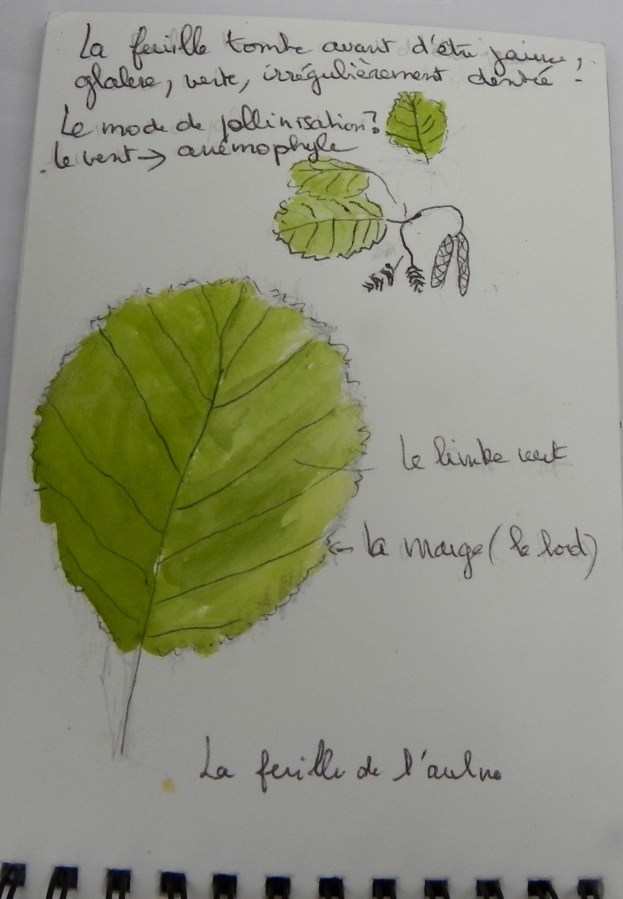 La feuille tombe avant d'être jaune,
glabre, verte, irrégulièrement dentée.
Le mode de pollinisation?
le vent → anémophyle
Le limbe vert
← la marge (le bord)
La feuille de l'aulne